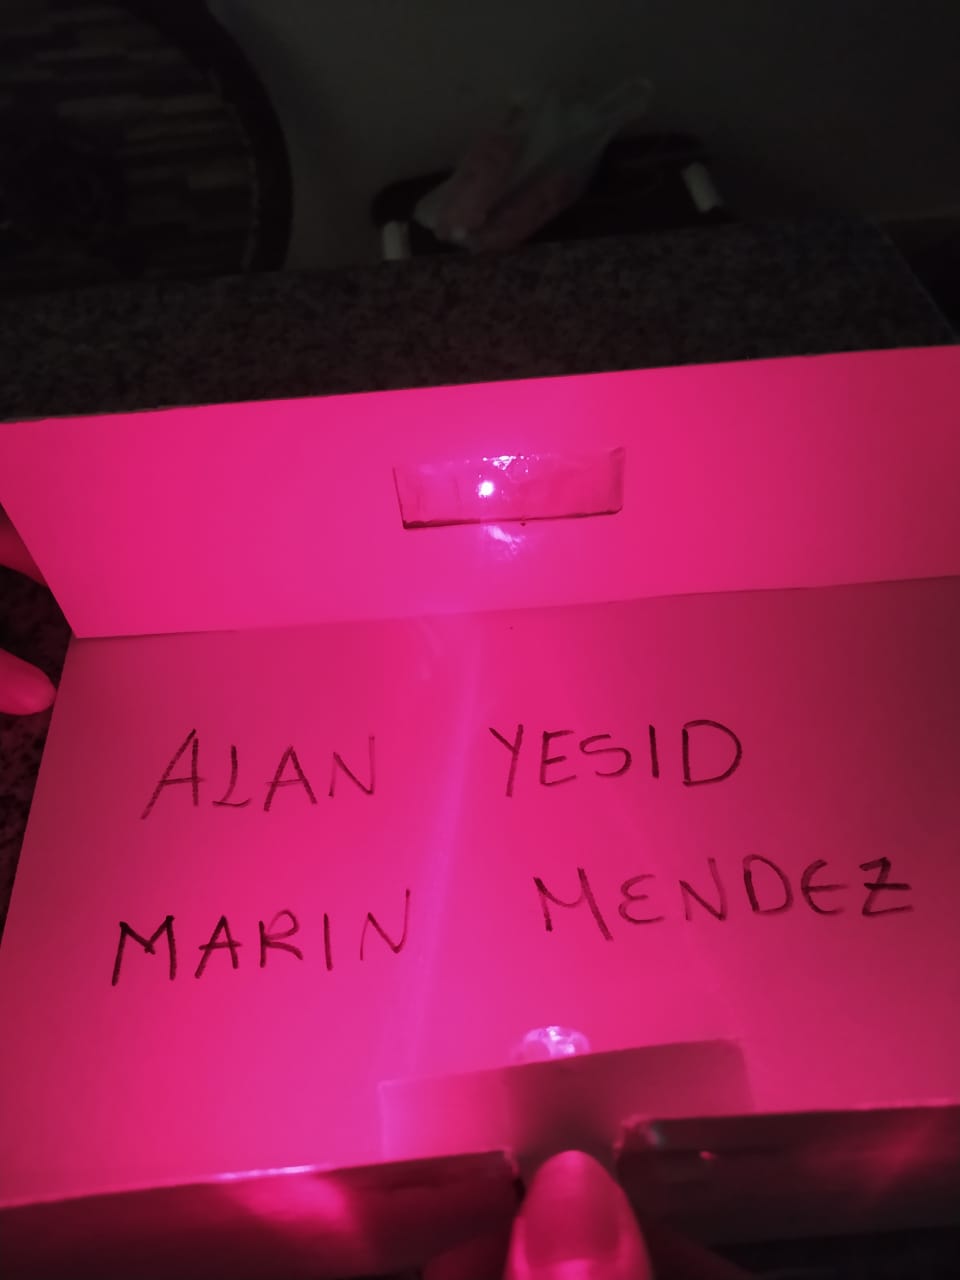 ALAN YESID
MARIN MENDEZ